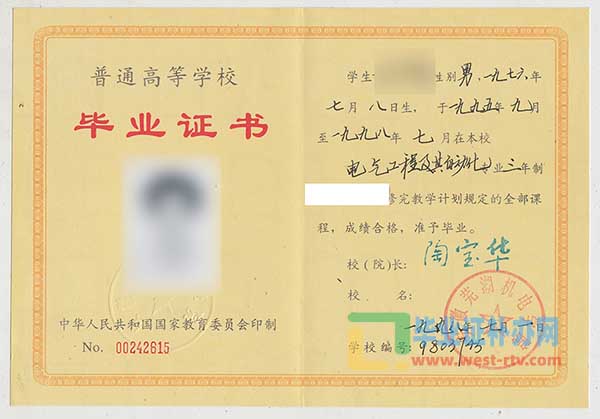 普通高等学校
毕业证书
中华人民共和国国家教育委员会印制
No. 00242615
学生 性别 男,一九七六年
七月八日生, 于一九九五年九月
至一九九八年 七月在本校
电气工程及其自动化专业 三年制
修完教学计划规定的全部课
程,成绩合格,准予毕业。
校(院)长: 陶宝华
校 名:
一九九八年七月一日
学校编号:
芜湖机电
www.west-rtv.com